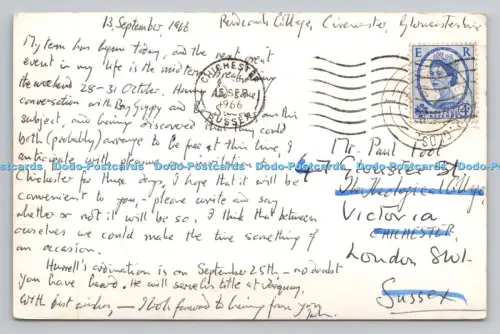 13, September, 1966
Rendcomb College, Cirencester, Gloucestershire
My term has begun today, and the next great
event in my life is the mid term break
the weekend 28-31 October. Having had some
conversation with on this
subject, and being discovered that they could
both (probably) arrange to be free at this time, I
anticipate with pleasure an to
Chichester for those days, I hope that it will be
convenient to you, please write and say
whether or not it will be so, I think that between
ourselves we could make the time something of
an occasion.
Hurrell's ordination is on September 25th - no doubt
you have heard. He will serve his title at Torquay.
With best wishes, - I look forward to hearing from you,
John.
CHICHESTER
SEP
1966
SUSSEX
E R
Mr. Paul
St,
The Theological College,
Victoria
CHICHESTER,
London SW1.
Sussex
www.Postcards-Downloads.com